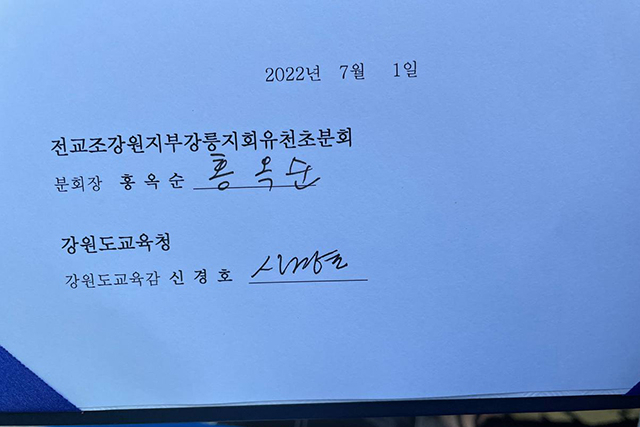 2022년 7월 1일
전교조강원지부강릉지회유천초분회
분회장 홍옥순 홍옥순
강원도교육청
강원도교육감 신경호